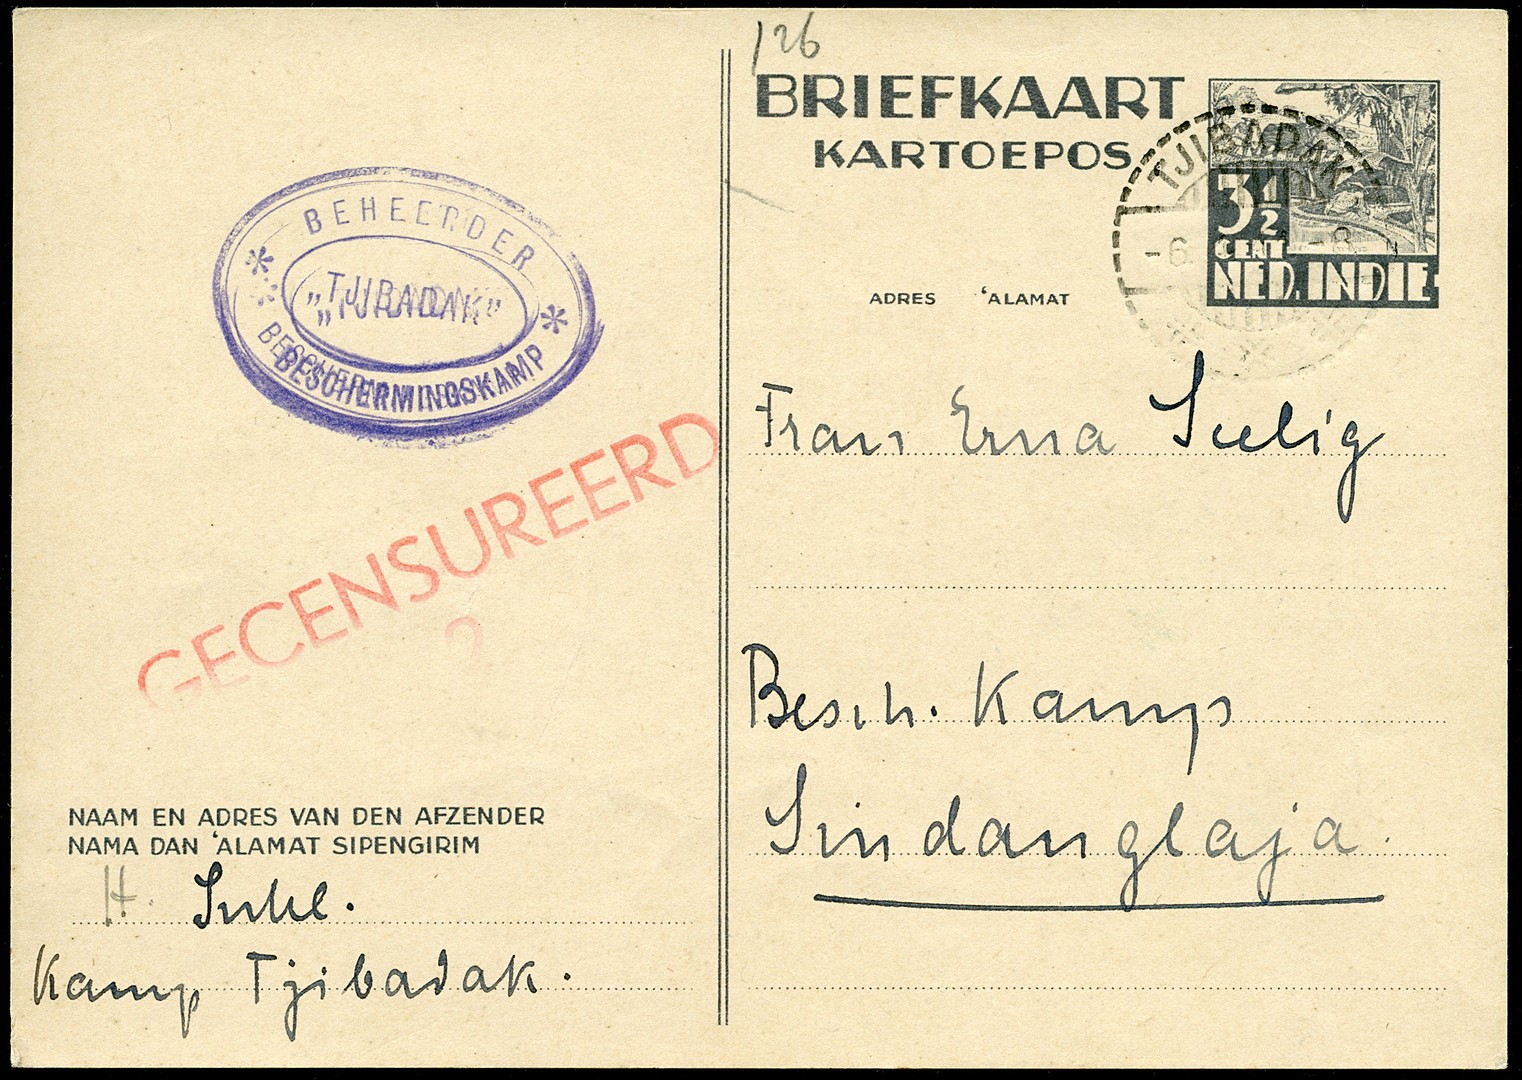 126
BRIEFKAART
KARTOEPOS
TJIBADAK
3½
CENT
NED. INDIE
ADRES 'ALAMAT
BEHEERDER
„TJIBADAK”
BESCHERMINGSKAMP
GECENSUREERD
2
Frau Erna Seelig
Besch. Kamp
Sindanglaja.
NAAM EN ADRES VAN DEN AFZENDER
NAMA DAN 'ALAMAT SIPENGIRIM
H.
Kamp Tjibadak.